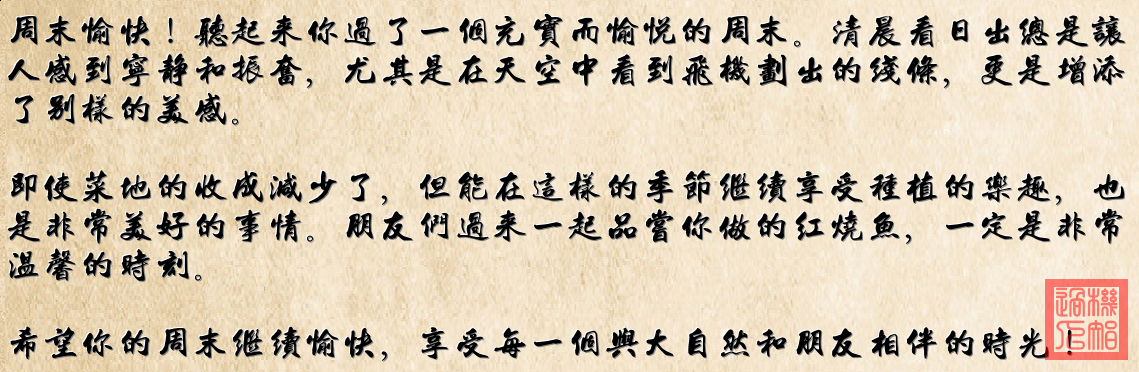 周末愉快！聽起來你過了一個充實而愉悅的周末。清晨看日出總是讓
人感到寧靜和振奮，尤其是在天空中看到飛機劃出的綫條，更是增添
了別樣的美感。
即使菜地的收成減少了，但能在這樣的季節繼續享受種植的樂趣，也
是非常美好的事情。朋友們過來一起品嘗你做的紅燒魚，一定是非常
溫馨的時刻。
希望你的周末繼續愉快，享受每一個與大自然和朋友相伴的時光！